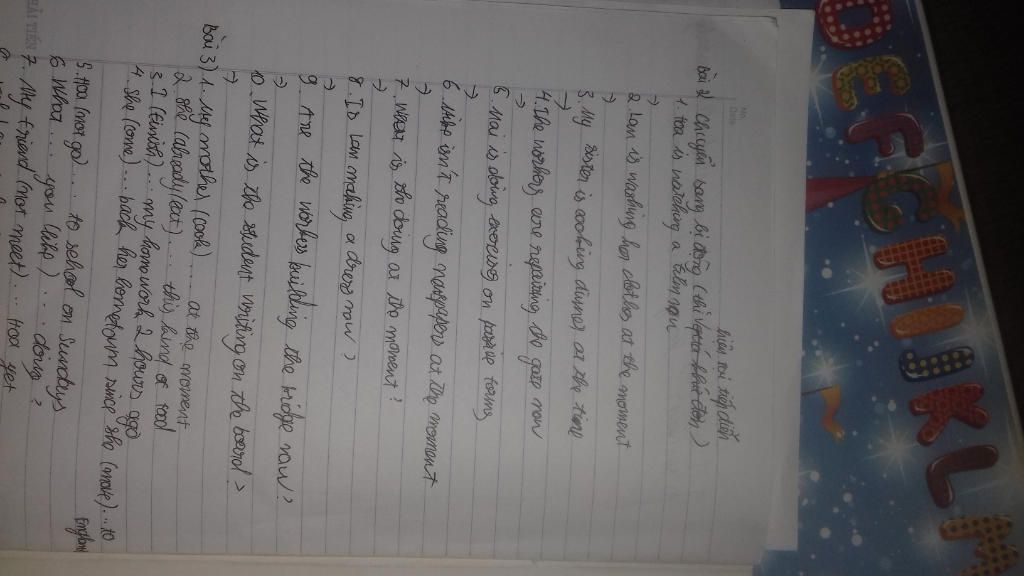 bài 2) chuyển sang bị động (thì hiện tại tiếp diễn)
1. Hoa is watching a film now
→
2. Lan is washing her clothes at the moment
→
3. My sister is cooking dinner at the time
→
4. The workers are repairing the gate now
→
5. Mai is doing exercises on passive
→
6. Miss isn't reading newspaper at the moment
→
7. What is she doing at the moment?
→
8. Is Lan making a dress now?
→
9. Are the workers building the bridge now?
→
10. What is the student writing on the board?
→
bài 3) 1. My mother (cook).... at the moment
2. She (already/eat).... this kind of food
3. I (finish)... my homework 2 hours ago
4. She (come)... back her hometown since she (move)...to England
5. Hoa (not go).... to school on Sundays
6. What... you (like)... doing?
7. My friend (not meet)... Hoa yet
HẢI TIẾN
No.
Date
DEFGHIJKLM